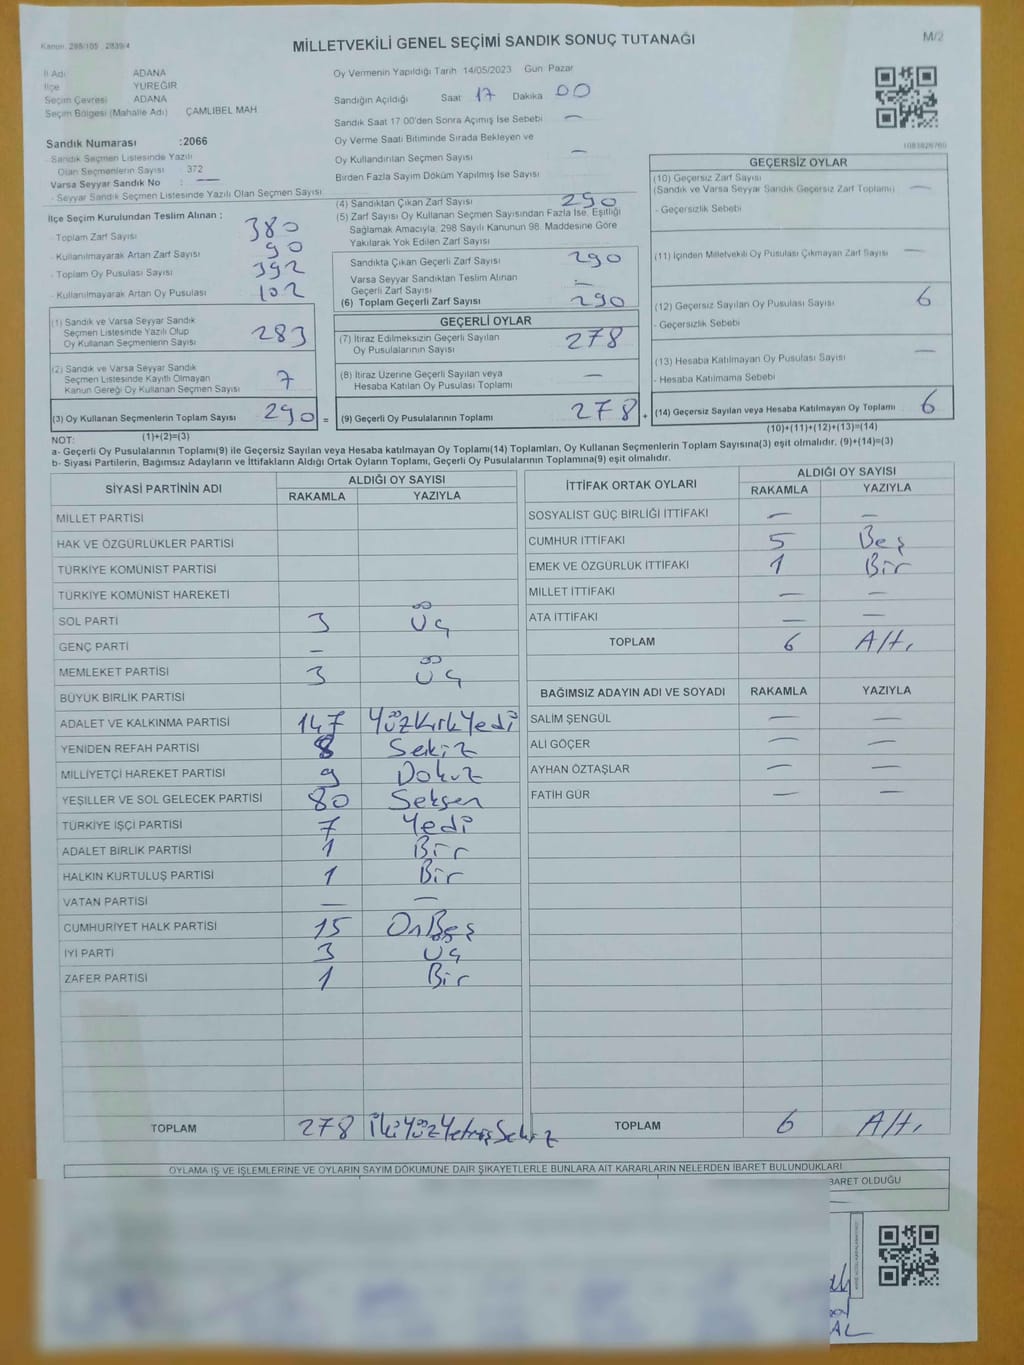 Kanun: 298/105 , 2839/4
MİLLETVEKİLİ GENEL SEÇİMİ SANDIK SONUÇ TUTANAĞI
M/2
İl Adı ADANA
İlçe YÜREĞİR
Seçim Çevresi ADANA
Seçim Bölgesi (Mahalle Adı) ÇAMLIBEL MAH
Sandık Numarası :2066
- Sandık Seçmen Listesinde Yazılı
Olan Seçmenlerin Sayısı 372
Varsa Seyyar Sandık No : —
- Seyyar Sandık Seçmen Listesinde Yazılı Olan Seçmen Sayısı
Oy Vermenin Yapıldığı Tarih 14/05/2023 Gün Pazar
Sandığın Açıldığı Saat 17 Dakika 00
Sandık Saat 17 00'den Sonra Açımış İse Sebebi —
Oy Verme Saati Bitiminde Sırada Bekleyen ve
Oy Kullandırılan Seçmen Sayısı —
Birden Fazla Sayım Döküm Yapılmış İse Sayısı —
1081826760
İlçe Seçim Kurulundan Teslim Alınan :
- Toplam Zarf Sayısı 380
- Kullanılmayarak Artan Zarf Sayısı 90
- Toplam Oy Pusulası Sayısı 392
- Kullanılmayarak Artan Oy Pusulası 102
(1) Sandık ve Varsa Seyyar Sandık
Seçmen Listesinde Yazılı Olup
Oy Kullanan Seçmenlerin Sayısı 283
(2) Sandık ve Varsa Seyyar Sandık
Seçmen Listesinde Kayıtlı Olmayan
Kanun Gereği Oy Kullanan Seçmen Sayısı 7
(3) Oy Kullanan Seçmenlerin Toplam Sayısı 290 =
(1)+(2)=(3)
(4) Sandıktan Çıkan Zarf Sayısı 290
(5) Zarf Sayısı Oy Kullanan Seçmen Sayısından Fazla İse, Eşitliği
Sağlamak Amacıyla, 298 Sayılı Kanunun 98. Maddesine Göre
Yakılarak Yok Edilen Zarf Sayısı
Sandıkta Çıkan Geçerli Zarf Sayısı 290
Varsa Seyyar Sandıktan Teslim Alınan
Geçerli Zarf Sayısı —
(6) Toplam Geçerli Zarf Sayısı 290
GEÇERLİ OYLAR
(7) İtiraz Edilmeksizin Geçerli Sayılan
Oy Pusulalarının Sayısı 278
(8) İtiraz Üzerine Geçerli Sayılan veya
Hesaba Katılan Oy Pusulası Toplamı —
(9) Geçerli Oy Pusulalarının Toplamı 278 +
GEÇERSİZ OYLAR
(10) Geçersiz Zarf Sayısı
(Sandık ve Varsa Seyyar Sandık Geçersiz Zarf Toplamı) —
- Geçersizlik Sebebi
(11) İçinden Milletvekili Oy Pusulası Çıkmayan Zarf Sayısı —
(12) Geçersiz Sayılan Oy Pusulası Sayısı 6
- Geçersizlik Sebebi
(13) Hesaba Katılmayan Oy Pusulası Sayısı —
- Hesaba Katılmama Sebebi
(14) Geçersiz Sayılan veya Hesaba Katılmayan Oy Toplamı 6
(10)+(11)+(12)+(13)=(14)
NOT:
a- Geçerli Oy Pusulalarının Toplamı(9) ile Geçersiz Sayılan veya Hesaba katılmayan Oy Toplamı(14) Toplamları, Oy Kullanan Seçmenlerin Toplam Sayısına(3) eşit olmalıdır. (9)+(14)=(3)
b- Siyasi Partilerin, Bağımsız Adayların ve İttifakların Aldığı Ortak Oyların Toplamı, Geçerli Oy Pusulalarının Toplamına(9) eşit olmalıdır.
SİYASİ PARTİNİN ADI ALDIĞI OY SAYISI
RAKAMLA YAZIYLA
MİLLET PARTİSİ
HAK VE ÖZGÜRLÜKLER PARTİSİ
TÜRKİYE KOMÜNİST PARTİSİ
TÜRKİYE KOMÜNİST HAREKETİ
SOL PARTİ 3 Üç
GENÇ PARTİ –
MEMLEKET PARTİSİ 3 Üç
BÜYÜK BİRLİK PARTİSİ
ADALET VE KALKINMA PARTİSİ 147 YüzKırkYedi
YENİDEN REFAH PARTİSİ 8 Sekiz
MİLLİYETÇİ HAREKET PARTİSİ 9 Dokuz
YEŞİLLER VE SOL GELECEK PARTİSİ 80 Seksen
TÜRKİYE İŞÇİ PARTİSİ 7 Yedi
ADALET BİRLİK PARTİSİ 1 Bir
HALKIN KURTULUŞ PARTİSİ 1 Bir
VATAN PARTİSİ — —
CUMHURİYET HALK PARTİSİ 15 OnBeş
İYİ PARTİ 3 Üç
ZAFER PARTİSİ 1 Bir
TOPLAM 278 İkiYüzYetmişSekiz
İTTİFAK ORTAK OYLARI ALDIĞI OY SAYISI
RAKAMLA YAZIYLA
SOSYALİST GÜÇ BİRLİĞİ İTTİFAKI — —
CUMHUR İTTİFAKI 5 Beş
EMEK VE ÖZGÜRLÜK İTTİFAKI 1 Bir
MİLLET İTTİFAKI — —
ATA İTTİFAKI — —
TOPLAM 6 Altı
BAĞIMSIZ ADAYIN ADI VE SOYADI RAKAMLA YAZIYLA
SALİM ŞENGÜL — —
ALİ GÖÇER — —
AYHAN ÖZTAŞLAR — —
FATİH GÜR — —
TOPLAM 6 Altı
OYLAMA İŞ VE İŞLEMLERİNE VE OYLARIN SAYIM DÖKÜMÜNE DAİR ŞİKAYETLERLE BUNLARA AİT KARARLARIN NELERDEN İBARET BULUNDUKLARI
BARET OLDUĞU